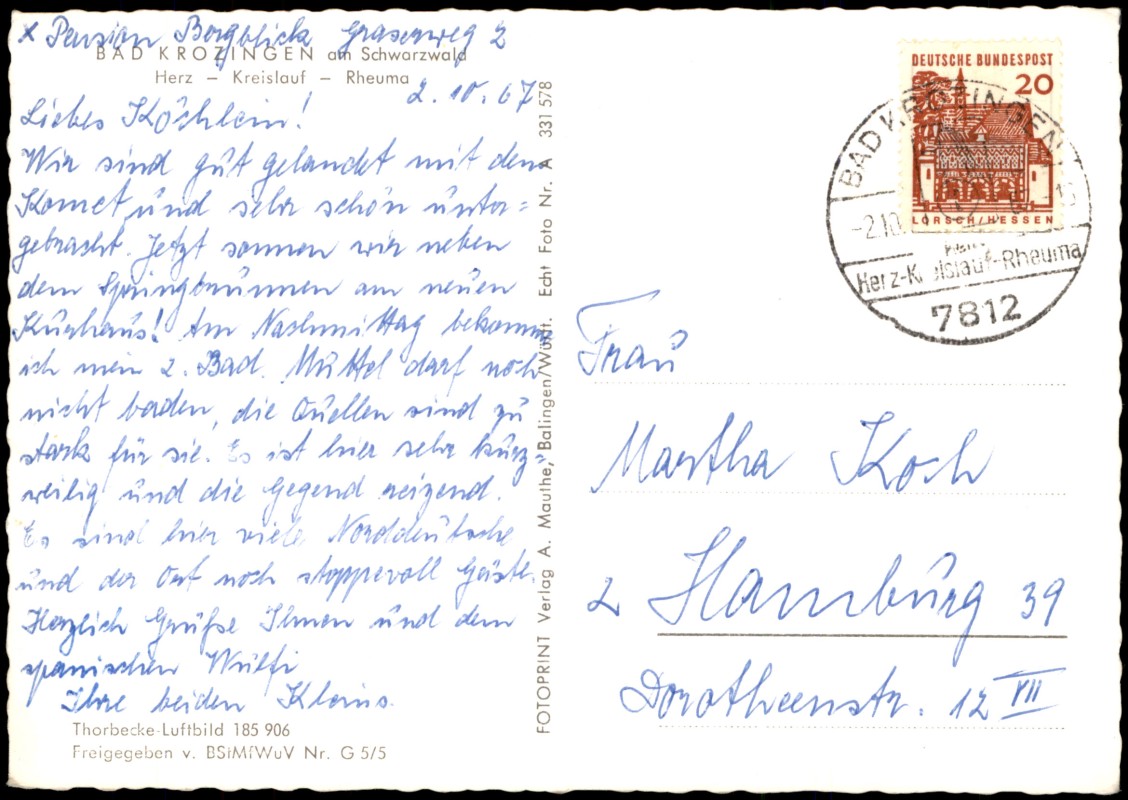 x Pension Bergblick Graserweg 2
BAD KROZINGEN am Schwarzwald
Herz – Kreislauf – Rheuma
2.10.67
Liebes Köchlein!
Wir sind gut gelandet mit dem
Komet und sehr schön unter=
gebracht. Jetzt sonnen wir neben
dem Springbrunnen am neuen
Kurhaus! Am Nachmittag bekomm
ich mein 2. Bad. Muttel darf noch
nicht baden, die Quellen sind zu
stark für sie. Es ist hier sehr kurz=
weilig und die Gegend reizend.
Es sind hier viele Norddeutsche
und der Ort noch stoppevoll Gäste.
Herzlich Grüße Ihnen und dem
spanischen Wulfi
Ihre beiden Kleins.
Thorbecke-Luftbild 185 906
Freigegeben v. BStMfWuV Nr. G 5/5
FOTOPRINT Verlag A. Mauthe, Balingen/Württ. Echt Foto Nr. A 331 578
DEUTSCHE BUNDESPOST
20
LORSCH/HESSEN
BAD KROZINGEN
-2.10.
Herz-Kreislauf-Rheuma
7812
Frau
Martha Koch
2 Hamburg 39
Dorotheenstr. 12 VII